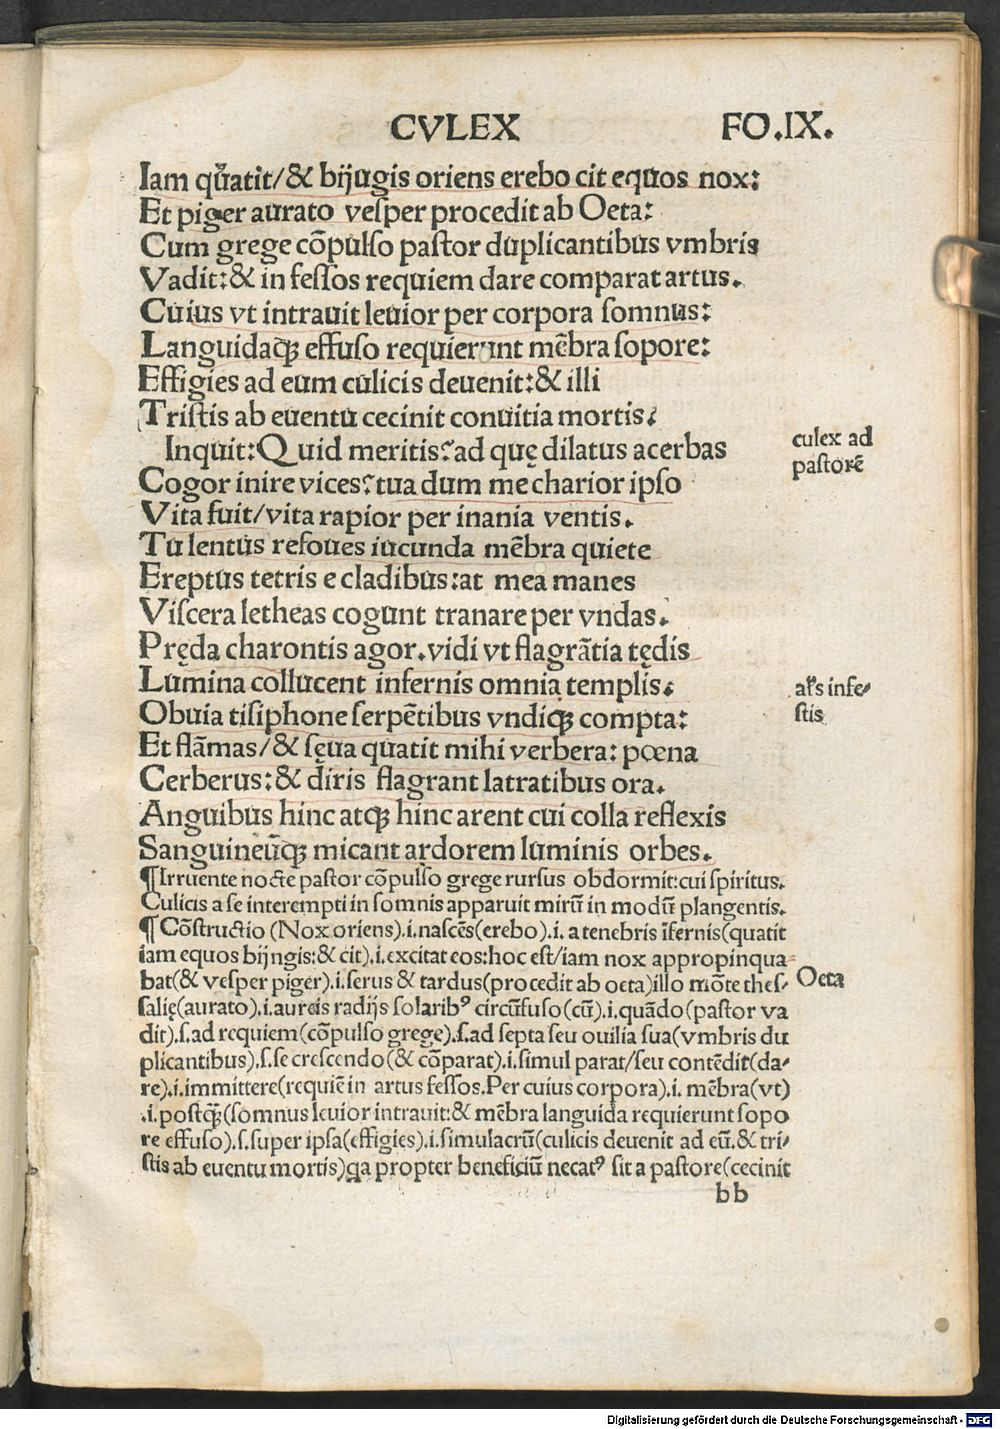 CVLEX FO.IX.
Iam qu̓atit/& bijugis oriens erebo cit equos nox:
Et piger aurato veſper procedit ab Oeta:
Cum grege cõpulſo paſtor duplicantibus vmbris
Vadit:& in feſſos requiem dare comparat artus.
Cuius vt intrauit leuior per corpora ſomnus:
Languidaqꝫ effuſo requierunt mẽbra ſopore:
Effigies ad eum culicis deuenit:& illi
Triſtis ab euentu cecinit conuitia mortis.
Inquit:Quid meritis?ad quę dilatus acerbas
culex ad
paſtorẽ
Cogor inire vices?tua dum me charior ipſo
Vita fuit/vita rapior per inania ventis.
Tu lentus refoues iucunda mẽbra quiete
Ereptus tetris e cladibus:at mea manes
Viſcera letheas cogunt tranare per vndas.
Pręda charontis agor.vidi vt flagrãtia tędis
Lumina collucent infernis omnia templis.
al's infe⸗
ſtis
Obuia tiſiphone ſerpẽtibus vndiqꝫ compta:
Et flãmas/& ſęua quatit mihi verbera: pœna
Cerberus:& diris flagrant latratibus ora.
Anguibus hinc atqꝫ hinc arent cui colla reflexis
Sanguineũqꝫ micant ardorem luminis orbes.
¶Irruente nocte paſtor cõpulſo grege rurſus obdormit:cui ſpiritus.
Culicis a ſe interempti in ſomnis apparuit mirũ in modũ plangentis.
¶ Cõſtructio (Nox oriens).i.naſcẽs(erebo).i. a tenebris ĩfernis(quatit
iam equos bijngis:& cit).i.excitat eos:hoc eſt/iam nox appropinqua⸗
bat(& veſper piger).i.ſerus & tardus(procedit ab oeta)illo mõte theſ⸗
Oeta
ſalię(aurato).i.aureis radijs ſolaribꝰ circũfuſo(cũ).i.quãdo(paſtor va
dit).ſ.ad requiem(cõpulſo grege).ſ.ad ſepta ſeu ouilia ſua(vmbris du
plicantibus).ſ.ſe creſcendo(& cõparat).i.ſimul parat/ſeu contẽdit(da⸗
re).i.immittere(requiẽ in artus feſſos.Per cuius corpora).i. mẽbra(vt)
.i.poſtqꝫ̃(ſomnus leuior intrauit:& mẽbra languida requierunt ſopo
re effuſo).ſ.ſuper ipſa(effigies).i.ſimulacrũ(culicis deuenit ad eũ.& tri⸗
ſtis ab euentu mortis)qa propter beneficiũ necatꝰ ſit a paſtore(cecinit
bb
Digitalisierung gefördert durch die Deutsche Forschungsgemeinschaft - DFG